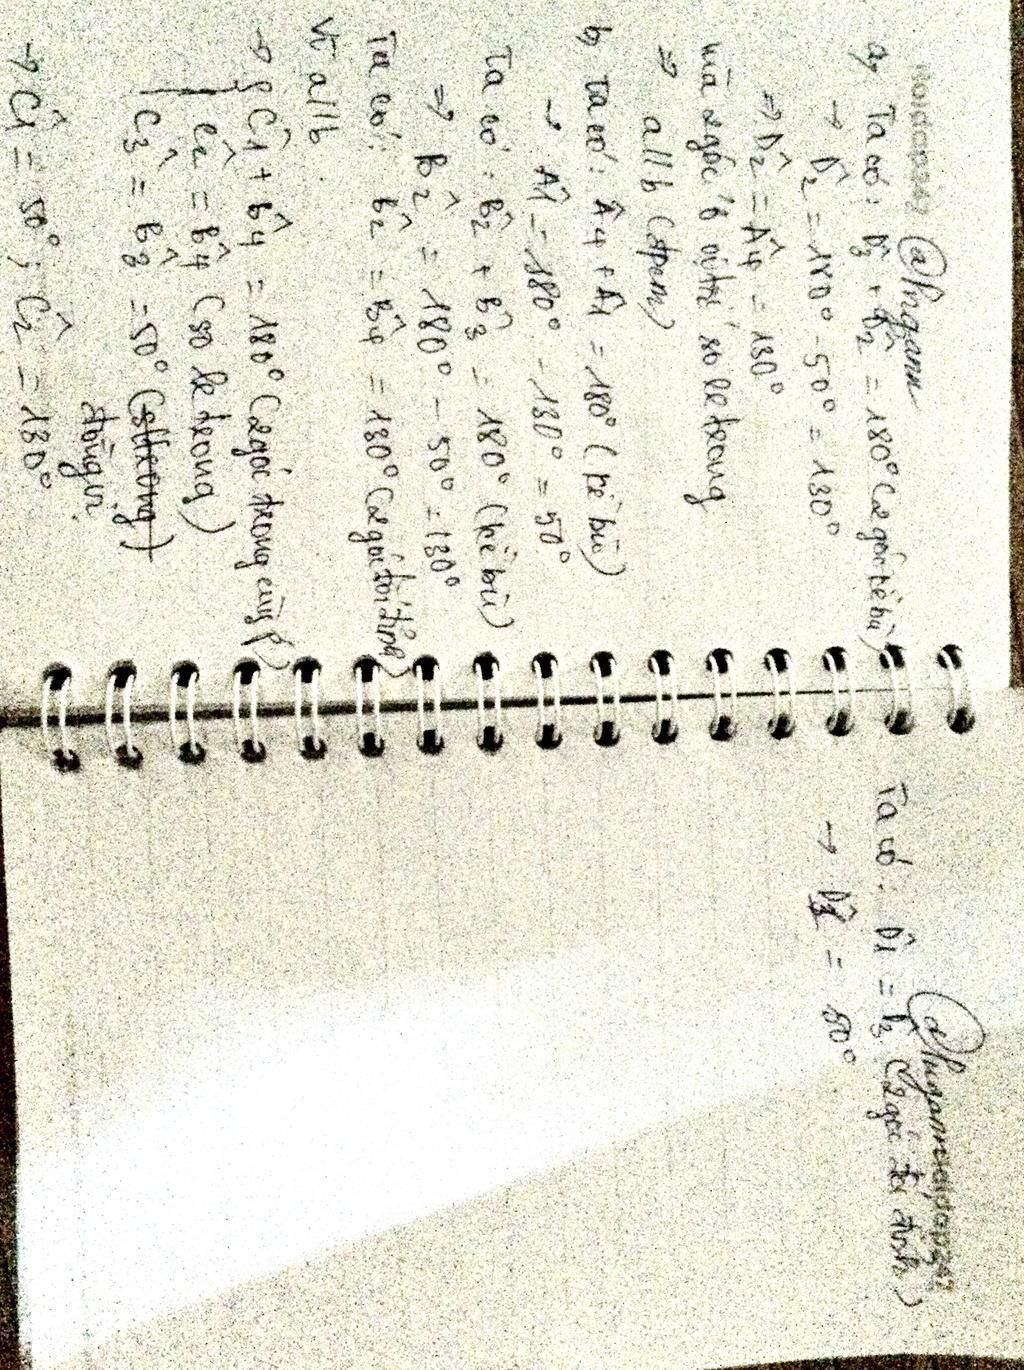 @Phgann
a, Ta có: D̂3 + D̂2 = 180° (2 góc kề bù)
→ D̂2 = 180° - 50° = 130°
⇒ D̂2 = Â4 = 130°
mà 2 góc ở vị trí so le trong
⇒ a//b (đpcm)
b, Ta có: Â4 + Â1 = 180° (kề bù)
→ Â1 = 180° - 130° = 50°
Ta có: B̂2 + B̂3 = 180° (kề bù)
⇒ B̂2 = 180° - 50° = 130°
Ta có: B̂2 = B̂4 = 130° (2 góc đối đỉnh)
Vì a//b.
→ { Ĉ1 + B̂4 = 180° (2 góc trong cùng p')
Ĉ2 = B̂4 (so le trong)
Ĉ3 = B̂3 = 50° (sltrong)
đồng vị
→ Ĉ1 = 50°; Ĉ2 = 130°
Ta có: D̂1 = D̂3 (2 góc đối đỉnh)
→ = 50°